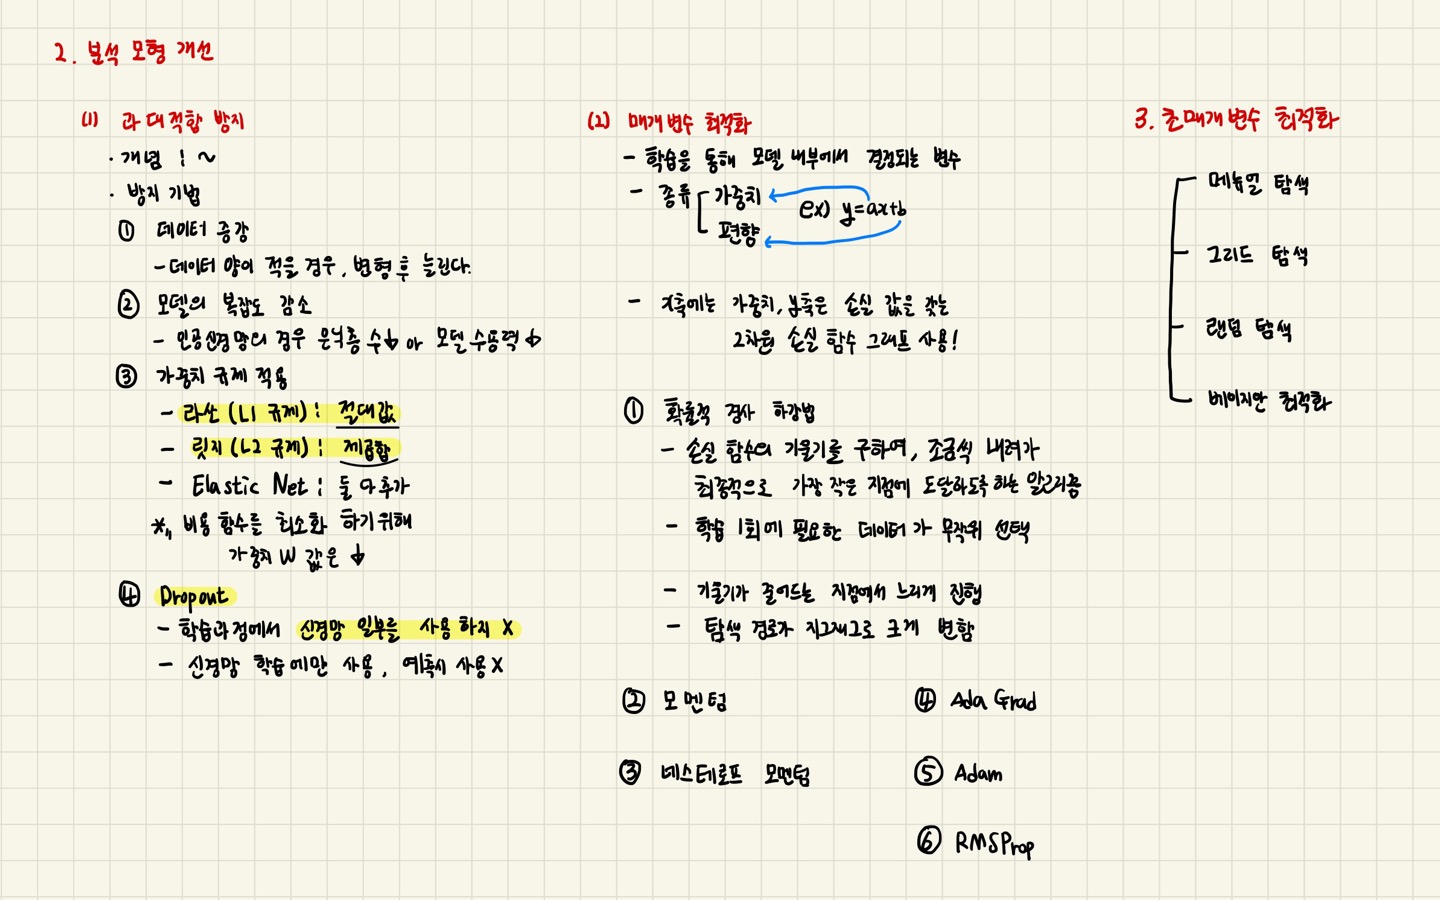 2. 분석 모형 개선
(1) 과대적합 방지
· 개념 : ~
· 방지 기법
① 데이터 증강
- 데이터 양이 적을 경우, 변형 후 늘린다.
② 모델의 복잡도 감소
- 인공신경망의 경우 은닉층 수↓ or 모델 수용력↓
③ 가중치 규제 적용
- 라쏘 (L1 규제) : 절대값
- 릿지 (L2 규제) : 제곱합
- Elastic Net : 둘 다 추가
*,, 비용 함수를 최소화 하기 위해
가중치 W 값은 ↓
④ Dropout
- 학습과정에서 신경망 일부를 사용 하지 X
- 신경망 학습에만 사용, 예측시 사용 X
(2) 매개변수 최적화
- 학습을 통해 모델 내부에서 결정되는 변수
- 종류 가중치
편향
ex) y=ax+b
- x축에는 가중치, y축은 손실 값을 갖는
2차원 손실 함수 그래프 사용!
① 확률적 경사 하강법
- 손실 함수의 기울기를 구하여, 조금씩 내려가
최종적으로 가장 작은 지점에 도달하도록 하는 알고리즘
- 학습 1회에 필요한 데이터가 무작위 선택
- 기울기가 줄어드는 지점에서 느리게 진행
- 탐색 경로가 지그재그로 크게 변함
② 모멘텀
③ 네스테로프 모멘텀
④ Ada Grad
⑤ Adam
⑥ RMSProp
3. 초매개변수 최적화
메뉴얼 탐색
그리드 탐색
랜덤 탐색
베이지안 최적화